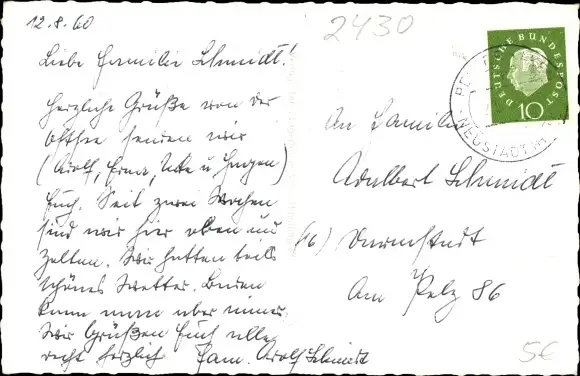 12.8.60
2430
Liebe Familie Schmidt!
Herzliche Grüße von der
Ostsee senden wir
(Adolf, Erna, Ute u. Jürgen)
Euch. Seit zwei Wochen
sind wir hier oben und
zelten. Wir hatten teils
schönes Wetter. Baden
kann man aber immer.
Wir Grüßen Euch alle
recht herzlich Fam. Adolf Schmidt
DEUTSCHE BUNDESPOST
10
NEUSTADT
An Familie
Adalbert Schmidt
(16) Darmstadt
Am Pelz 86
5€